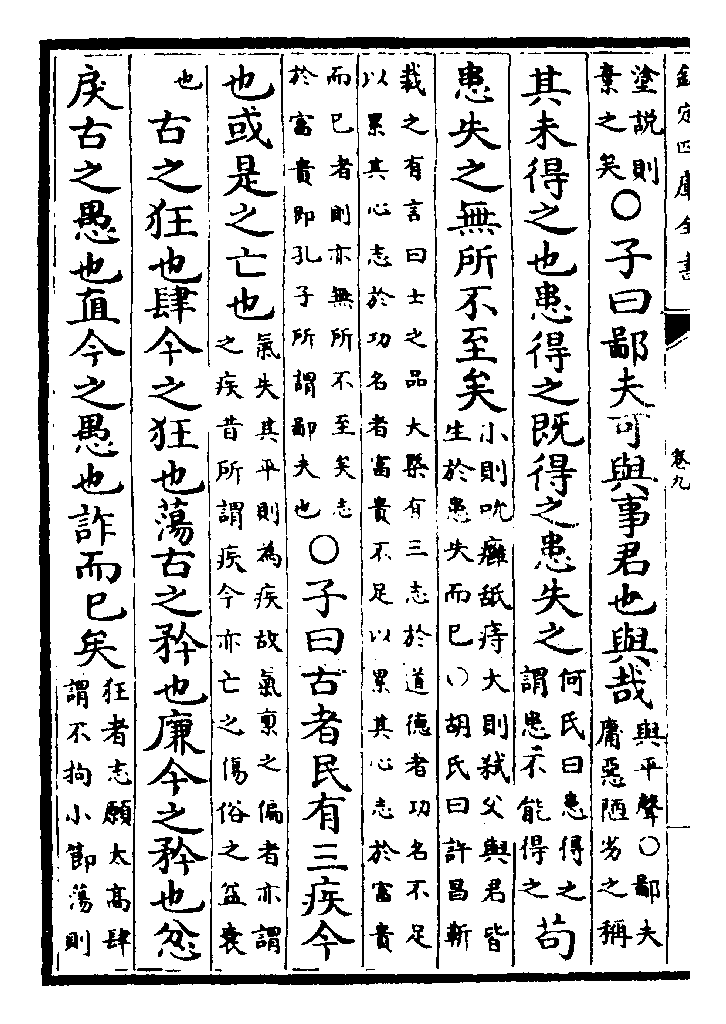 欽定四庫全書
卷九
塗說則
棄之矣
○子曰鄙夫可與事君也與哉
與平聲○鄙夫
庸惡陋劣之稱
其未得之也患得之既得之患失之
何氏曰患得之
謂患不能得之
苟
患失之無所不至矣
小則吮癰舐痔大則弑父與君皆
生於患失而已○胡氏曰許昌靳
裁之有言曰士之品大槩有三志於道德者功名不足
以累其心志於功名者富貴不足以累其心志於富貴
而已者則亦無所不至矣志
於富貴即孔子所謂鄙夫也
○子曰古者民有三疾今
也或是之亡也
氣失其平則為疾故氣稟之偏者亦謂
之疾昔所謂疾今亦亡之傷俗之益衰
也
古之狂也肆今之狂也蕩古之矜也廉今之矜也忿
戾古之愚也直今之愚也詐而已矣
狂者志願太高肆
謂不拘小節蕩則